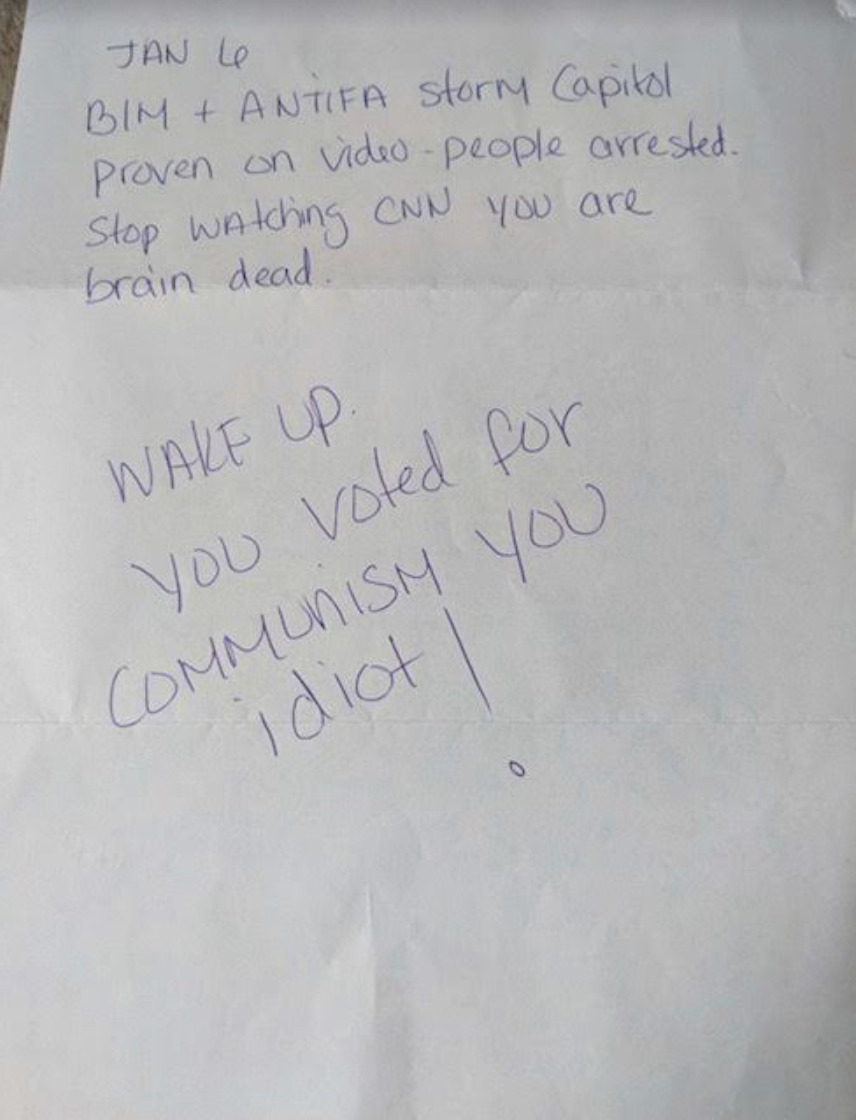 JAN 6
BIM + ANTIFA storm Capitol
proven on video - people arrested.
Stop WAtching CNN YOU are
brain dead.
WAKE UP.
YOU voted for
COMMUNISM YOU
idiot!